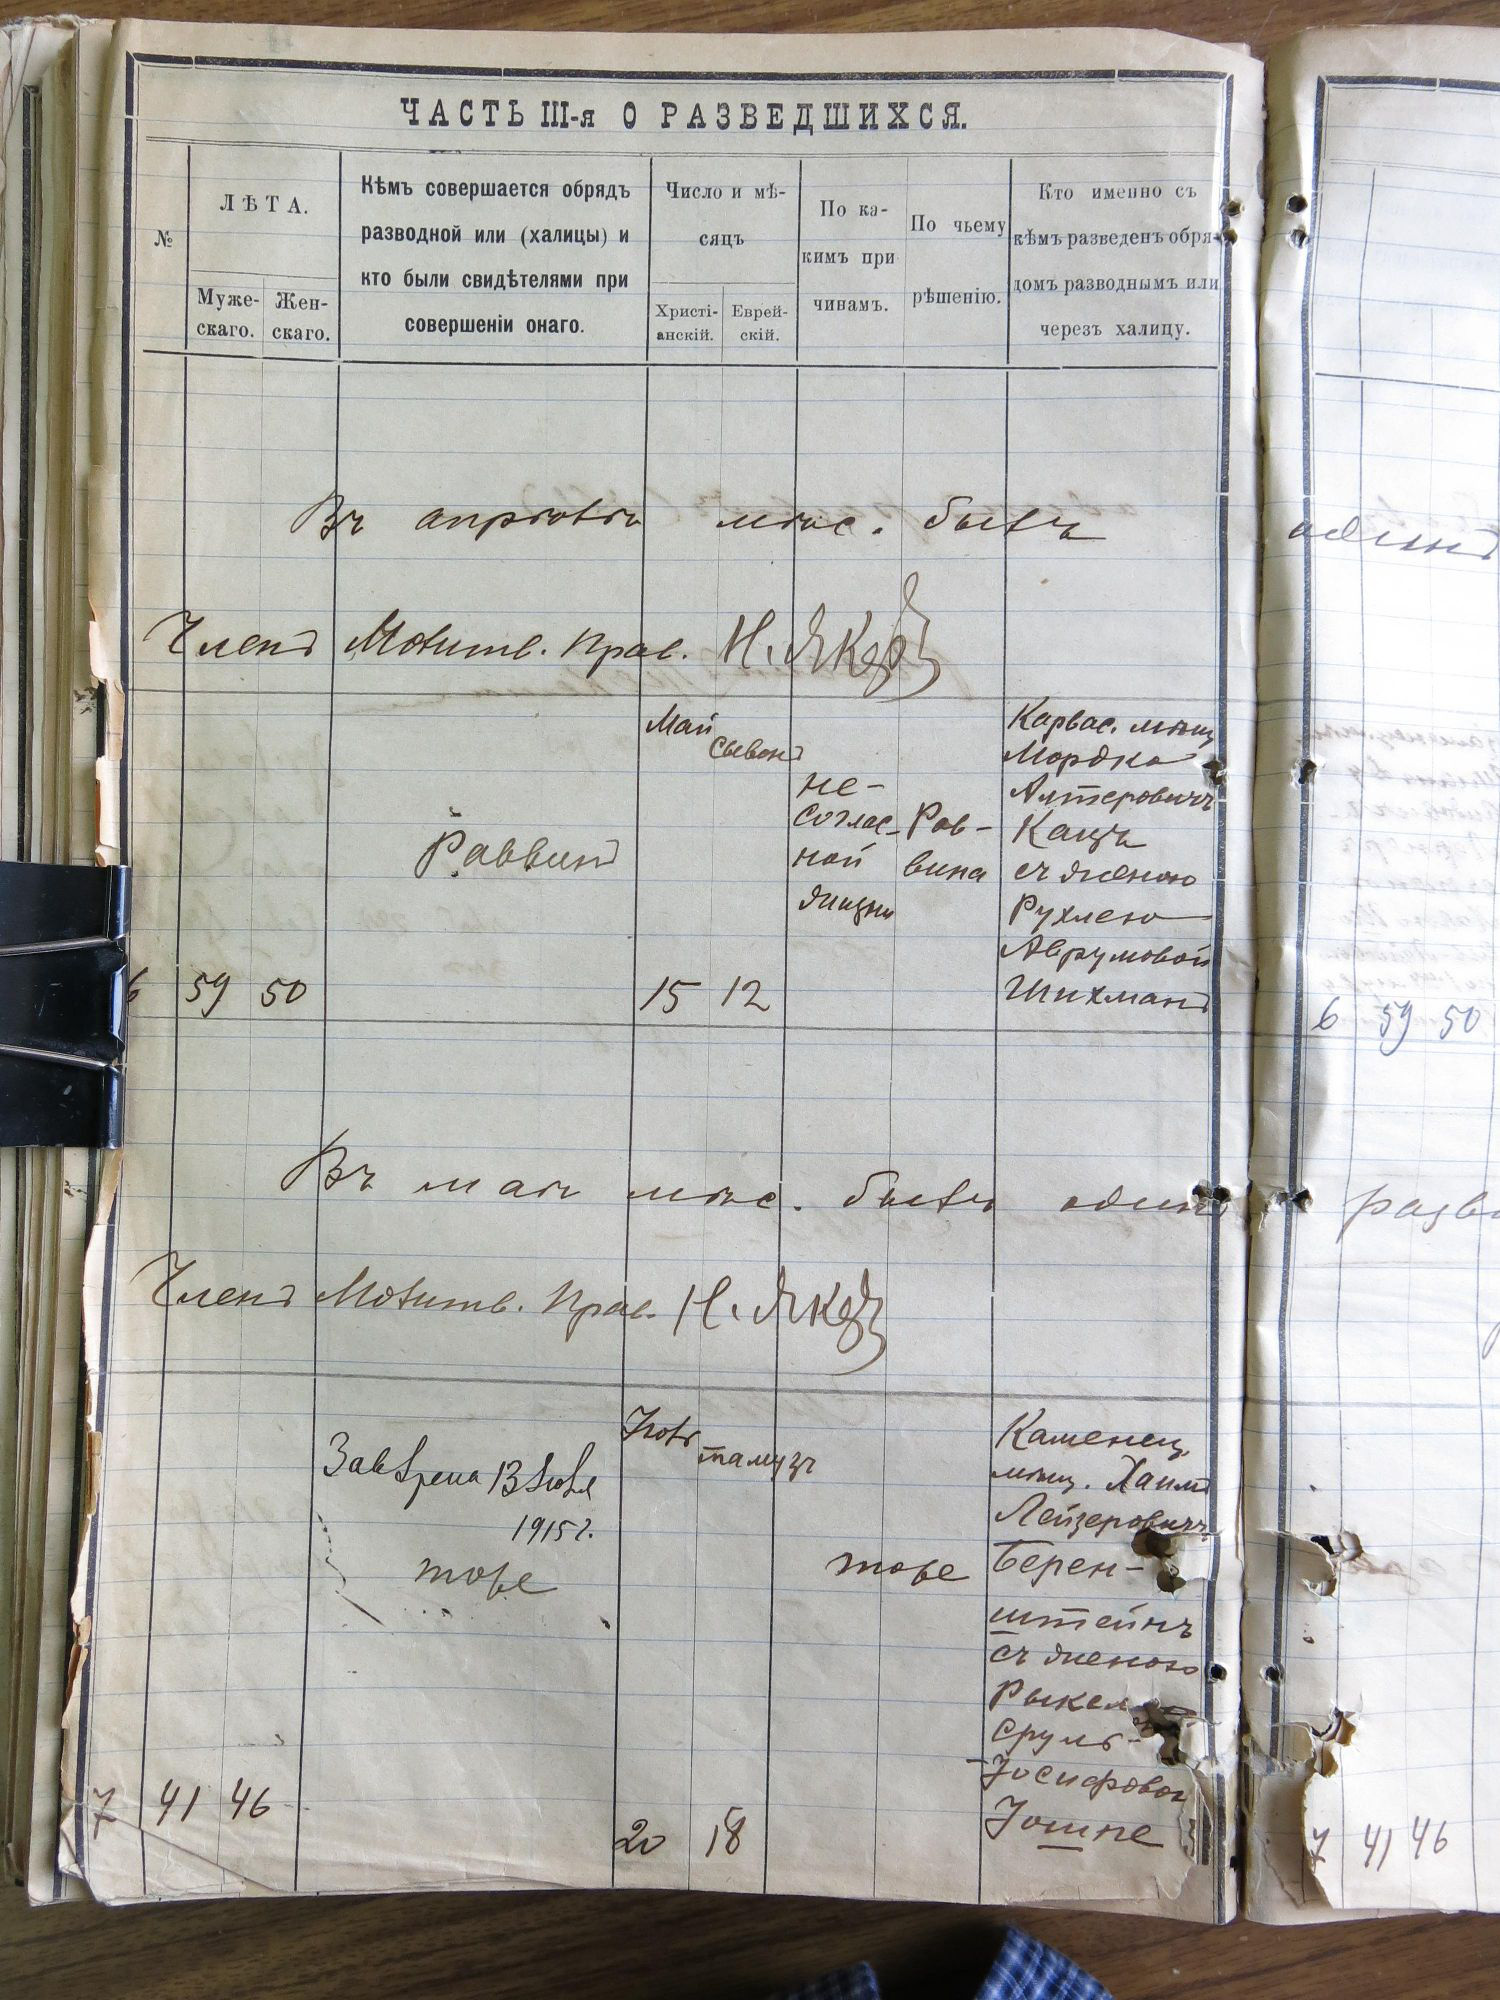 ЧАСТЬ III-я О РАЗВЕДШИХСЯ.
№
ЛѢТА.
Муже-
скаго.
Жен-
скаго.
Кѣмъ совершается обрядъ
разводной или (халицы) и
кто были свидѣтелями при
совершеніи онаго.
Число и мѣ-
сяцъ
Христі-
анскій.
Еврей-
скій.
По ка-
кимъ при
чинамъ.
По чьему
рѣшенію.
Кто именно съ
кѣмъ разведенъ обря-
домъ разводнымъ или
черезъ халицу.
Въ апрѣлѣ мѣс. былъ одинъ
Членъ Молитв. Прав. Н. Якеръ
6 59 50
Раввинъ
Май
Сывонъ
15 12
не-
соглас-
ной
жизни
Рав-
вина
Карвас. мѣщ
Мордко
Алтеровичъ
Кацъ
съ женою
Рухлею
Аврумовой
Шихманъ
6 59 50
Въ маѣ мѣс. былъ одинъ разв
Членъ Молитв. Прав. Н. Якеръ
7 41 46
1915 г.
тоже
Іюль
тамузъ
20 18
тоже
Каменец.
мѣщ. Хаимъ
Лейзеровичъ
Берен-
штейнъ
съ женою
Рыкел
Сруль-
-Іосифовой
Іошпе
7 41 46